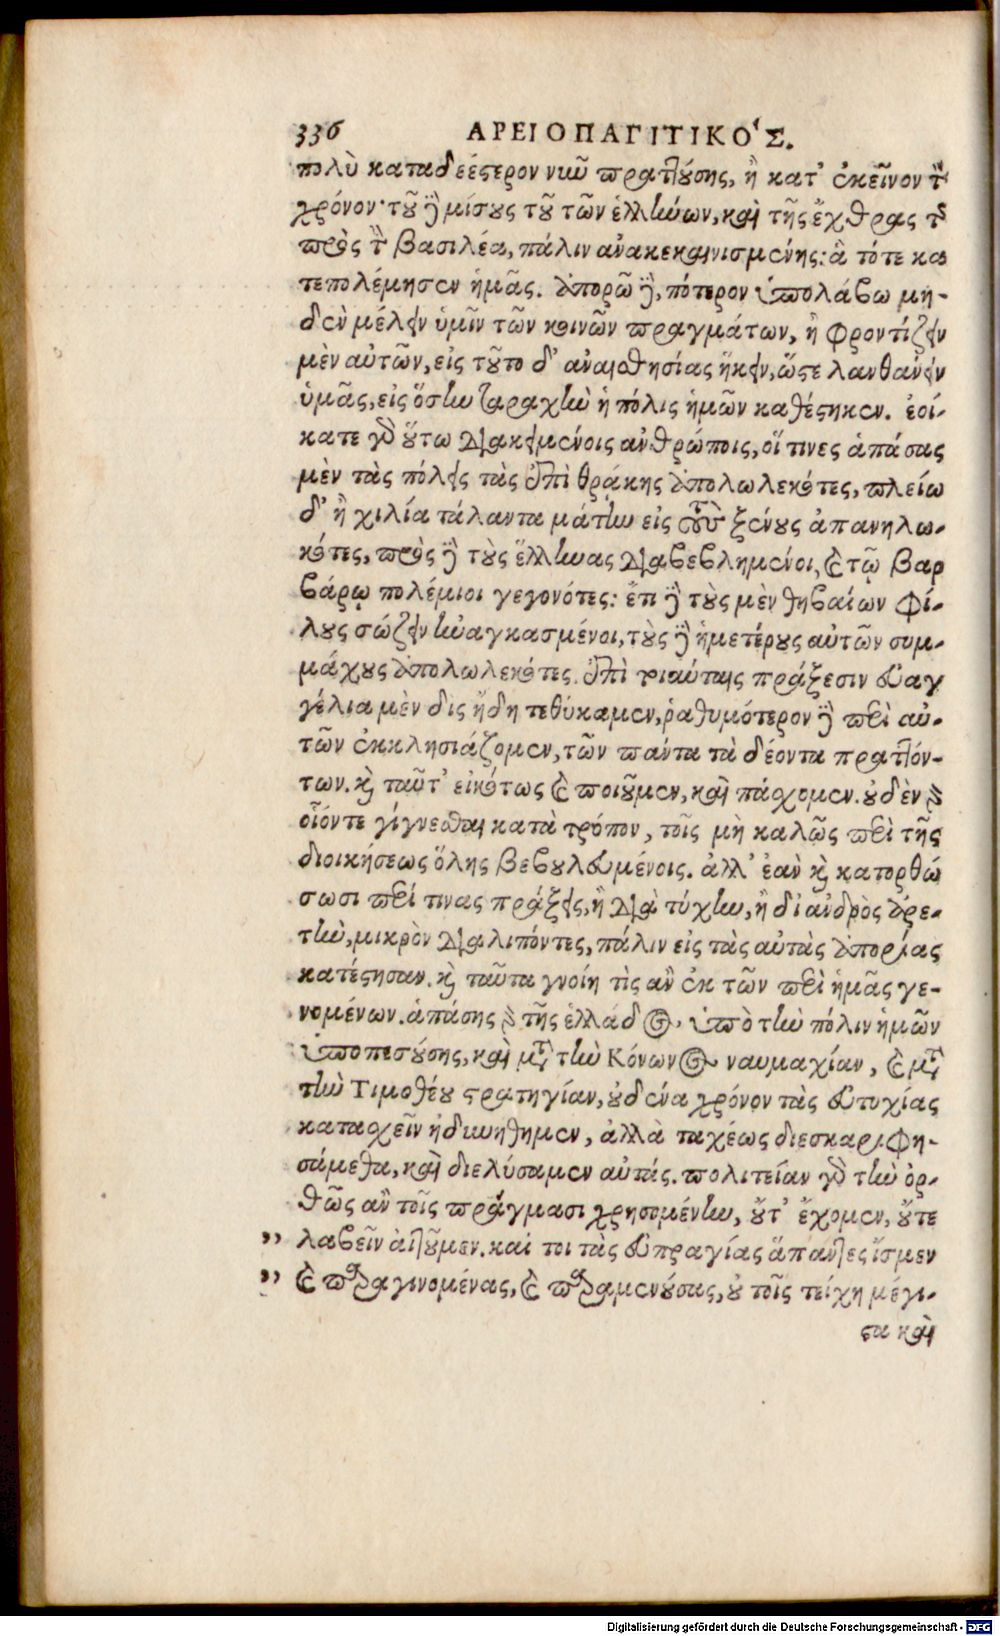 336 ΑΡΕΙΟΠΑΓΙΤΙΚΟ'Σ.
πολὺ καταδεέστερον νιῦ πραττούσης, ἢ κατ' ἐκεῖνον τὸν
χρόνον· τοῦ δὲ μίσους τοῦ τῶν ἑλλήνων, καὶ τῆς ἔχθρας τῆς
πρὸς τὸν βασιλέα, πάλιν ἀνακεκαινισμένης: ἃ τότε κα
τεπολέμησεν ἡμᾶς. ἀπορῶ δὲ, πότερον ὑπολάβω μη-
δὲν μέλειν ὑμῖν τῶν κοινῶν πραγμάτων, ἢ φροντίζειν
μὲν αὐτῶν, εἰς τοῦτο δ' ἀναισθησίας ἥκειν, ὥστε λανθάνειν
ὑμᾶς, εἰς ὅσην ταραχὴν ἡ πόλις ἡμῶν καθέστηκεν. ἐοί-
κατε γὰρ οὕτω διακειμένοις ἀνθρώποις, οἵ τινες ἁπάσας
μὲν τὰς πόλεις τὰς ἐπὶ θράκης ἀπολωλεκότες, πλείω
δ' ἢ χιλία τάλαντα μάτην εἰς τοὺς ξένους ἀπανηλω-
κότες, πρὸς δὲ τοὺς ἕλληνας διαβεβλημένοι, καὶ τῷ βαρ
βάρῳ πολέμιοι γεγονότες: ἔτι δὲ τοὺς μὲν θηβαίων φί-
λους σώζειν ἠναγκασμένοι, τοὺς δὲ ἡμετέρους αὐτῶν συμ-
μάχους ἀπολωλεκότες. ἐπὶ τοιαύταις πράξεσιν εὐαγ
γέλια μὲν δις ἤδη τεθύκαμεν, ῥαθυμότερον δὲ περὶ αὐ-
τῶν ἐκκλησιάζομεν, τῶν πάντα τὰ δέοντα πραττόν-
των. καὶ ταῦτ' εἰκότως καὶ ποιοῦμεν, καὶ πάσχομεν. οὐδὲν γὰρ
οἷόντε γίγνεσθαι κατὰ τρόπον, τοῖς μὴ καλῶς περὶ τῆς
διοικήσεως ὅλης βεβουλευμένοις. ἀλλ' ἐὰν καὶ κατορθώ
σωσι περί τινας πράξεις, ἢ διὰ τύχην, ἢ δι' ἀνδρὸς ἀρε-
τὴν, μικρὸν διαλιπόντες, πάλιν εἰς τὰς αὐτὰς ἀπορίας
κατέστησαν. καὶ ταῦτα γνοίη τὶς ἂν ἐκ τῶν περὶ ἡμᾶς γε-
νομένων. ἁπάσης γὰρ τῆς ἑλλάδος, ὑπὸ τὴν πόλιν ἡμῶν
ὑποπεσούσης, καὶ μετὰ τὴν Κόνωνος ναυμαχίαν, καὶ μετὰ
τὴν Τιμοθέου στρατηγίαν, οὐδένα χρόνον τὰς εὐτυχίας
κατασχεῖν ἠδυνήθημεν, ἀλλὰ ταχέως διεσκαριφη-
σάμεθα, καὶ διελύσαμεν αὐτάς. πολιτείαν γὰρ τὴν ὀρ-
θῶς ἂν τοῖς πράγμασι χρησομένην, οὔτ' ἔχομεν, οὔτε
,, λαβεῖν αἰτοῦμεν. καί τοι τὰς εὐπραγίας ἅπαντες ἴσμεν
,, καὶ παραγινομένας, καὶ παραμενούσας, οὐ τοῖς τείχη μέγι-
στα καὶ
Digitalisierung gefördert durch die Deutsche Forschungsgemeinschaft - DFG